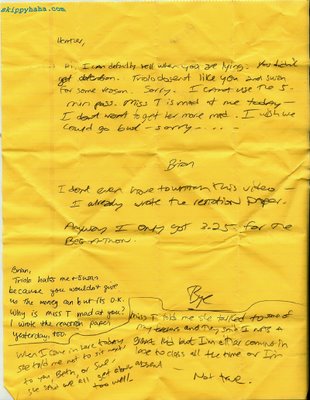 skippyhaha.com
Heather,
Hi, I can defiantly tell when you are lying. You didn't
get detention. Triolo doesent like you and Susan
for some reason. Sorry. I cannot use the 5-
min pass. Miss T is mad at me today -
I dont want to get her more mad. I wish we
could go but - sorry - . . . -
Brian
I dont even have to watch this video -
I already wrote the reaction paper.
Anyway I only got 3.25 for the
Brian,
Triolo hates me + Susan
because you wouldn't give
us the money can but its O.K.
Why is miss T mad at you?
I wrote the reaction paper
yesterday, too.
When I came in here today
she told me not to sit next
to you, Beth, or Sue,
she said we all get along
too well.
Bye
miss T told me she talked to some of
my teachers and they said I was a
good kid but I'm either coming in
late to class all the time or I'm
absent -
Not true.